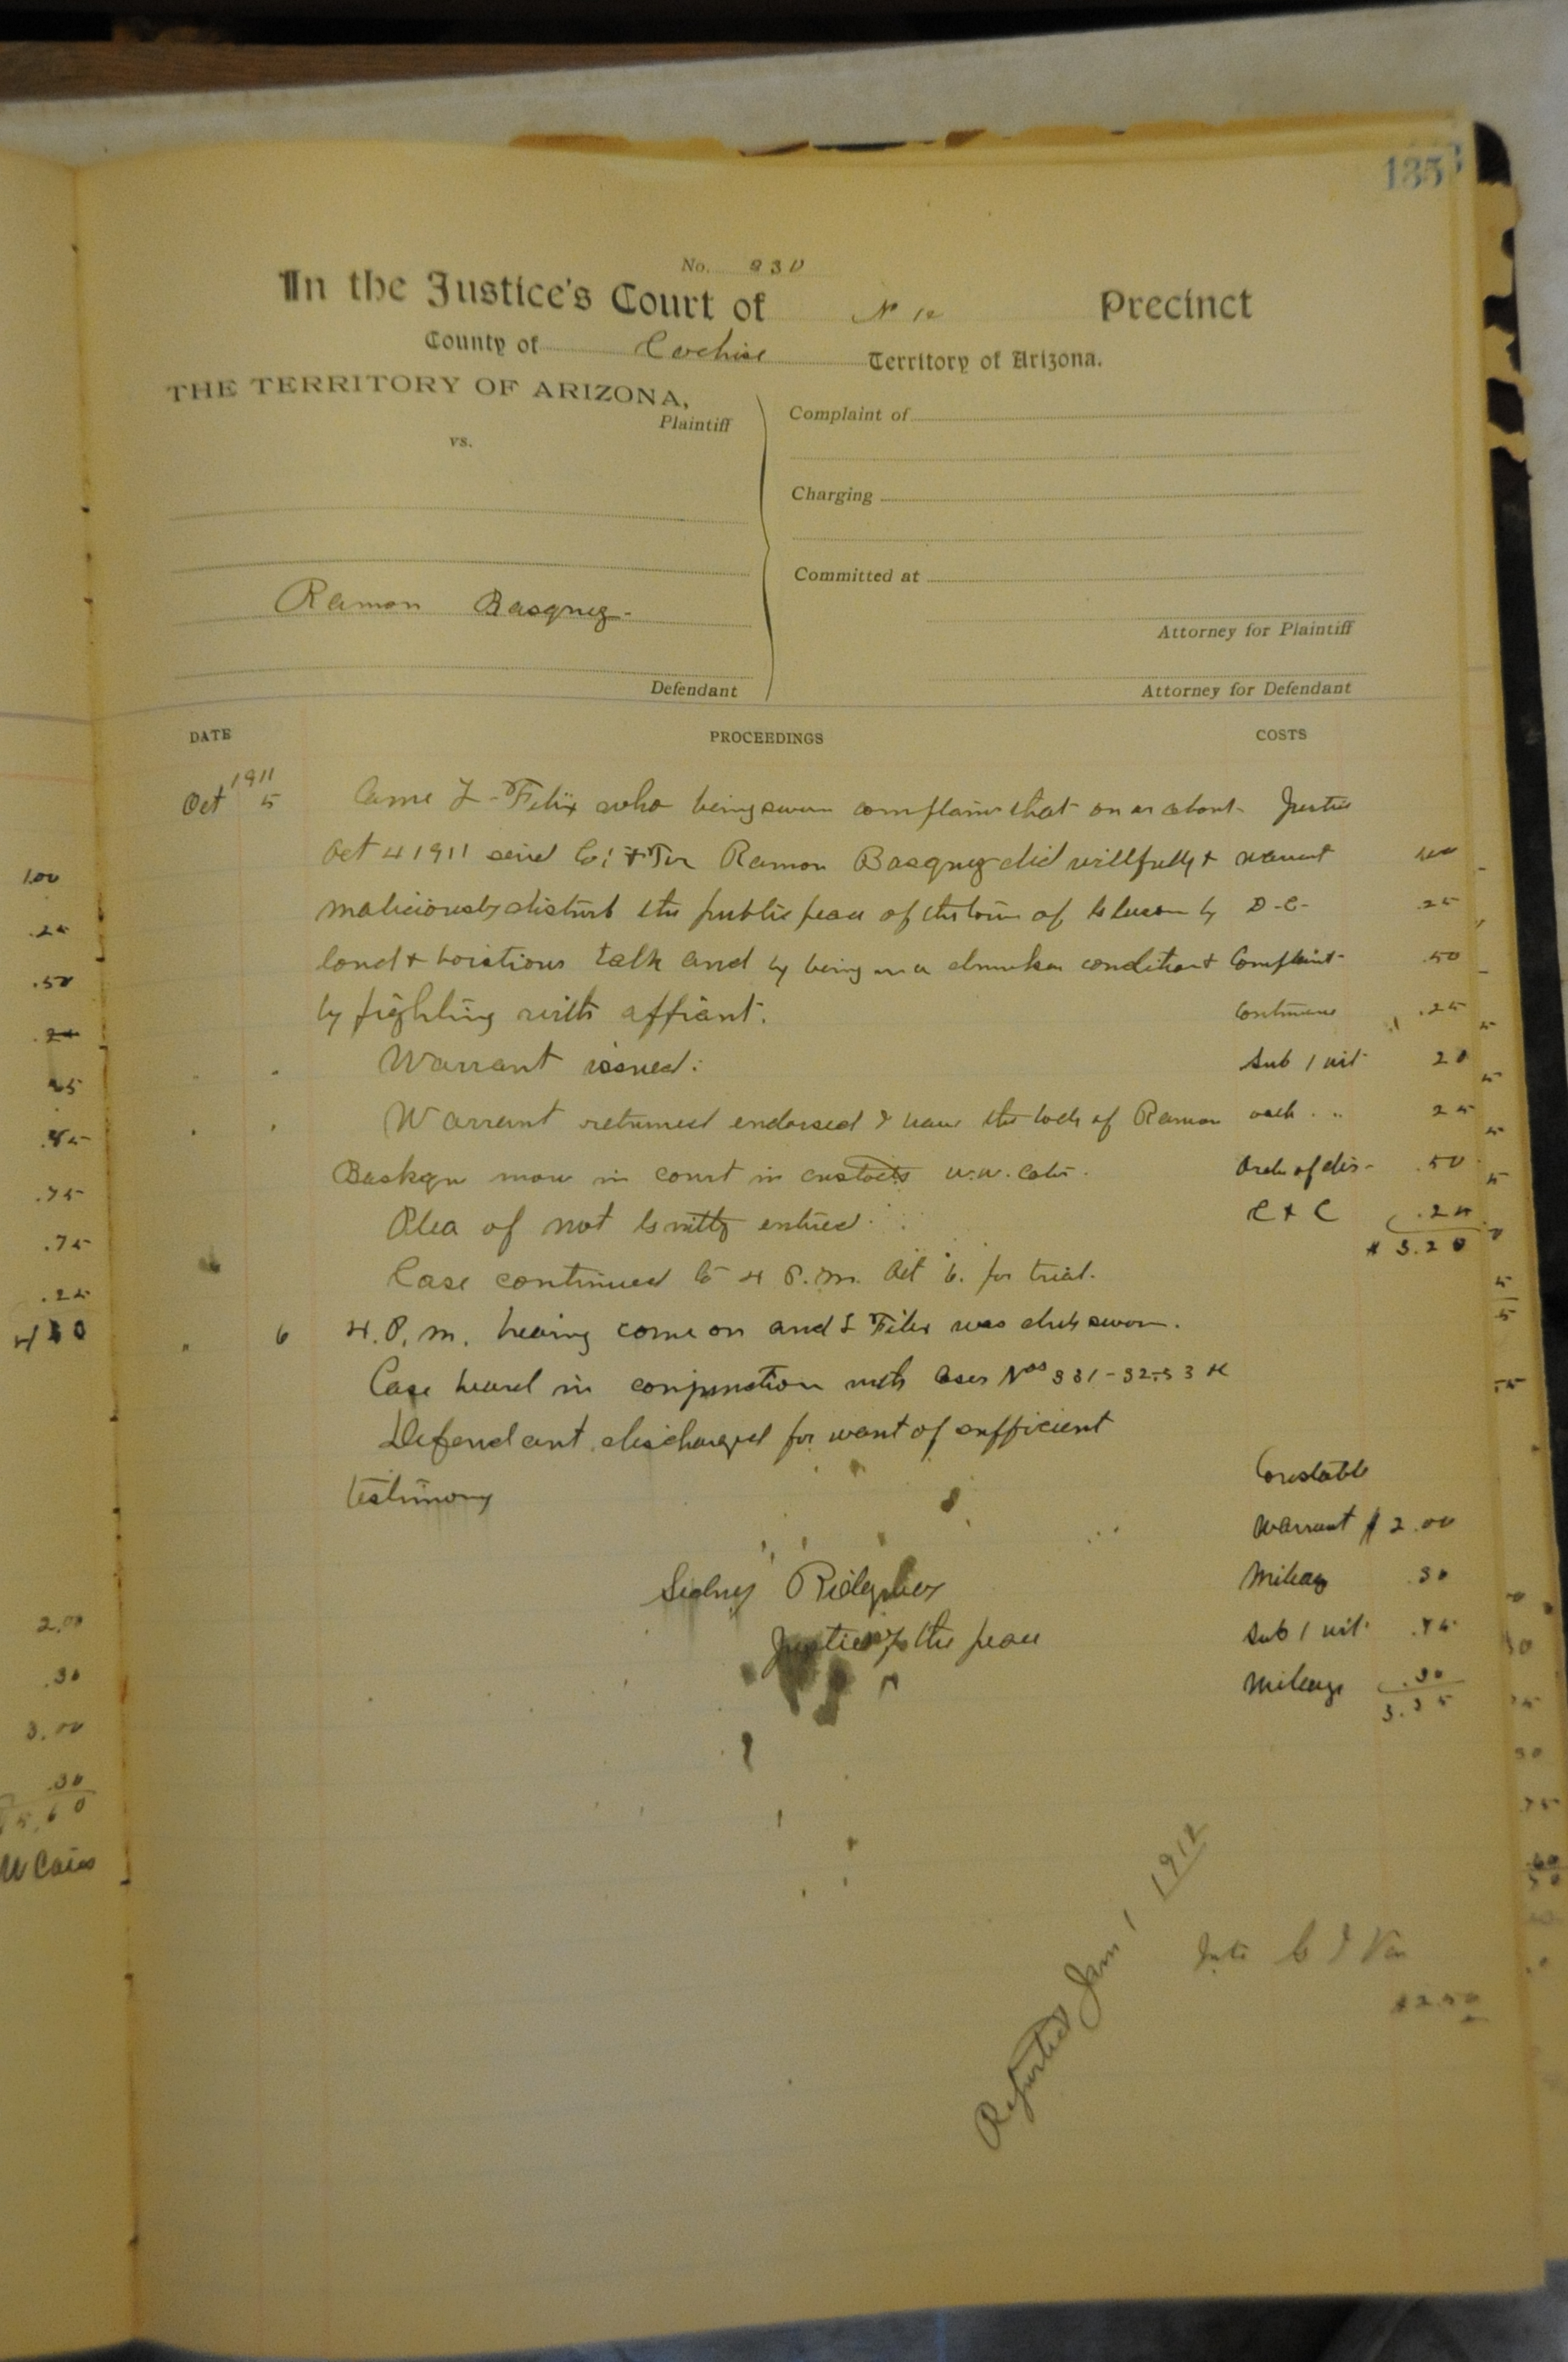 135
No. 330
In the Justice's Court of No 10 Precinct
County of Cochise Territory of Arizona.
THE TERRITORY OF ARIZONA,
Plaintiff
vs.
Complaint of
Charging
Committed at
Ramon Basquez
Attorney for Plaintiff
Defendant
Attorney for Defendant
DATE PROCEEDINGS COSTS
1911
Oct 5 Came L. Felix who being sworn complains that on or about Justice
Oct 4 1911 said Co. & Ter Ramon Basquez did willfully & warrant 1.00
maliciously disturb the public peace of the town of by D.C. .25
loud & boistious talk and by being in a drunken condition & Complaint .50
by fighting with affiant. Continue .25
Warrant issued. Sub 1 wit 20
Warrant returned endorsed I have the body of Ramon oath " 25
now in court in custody W.W. Order of dis .50
Plea of not Guilty entered. C & C .25
$ 3.20
Case continued to 4 P.M. Oct 6. for trial.
" 6 4. P. m. hearing come on and L Felix was duly sworn.
Case heard in conjunction with Cases Nos 331-32-33
Defendant discharged for want of sufficient
testimony
Constable
Warrant $ 2.00
Sidney
Mileag .30
Justice of the peace
Sub 1 wit .75
Mileage .30
3.35
Reported Jan 1 1912